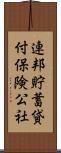 連邦貯蓄貸
付保険公社